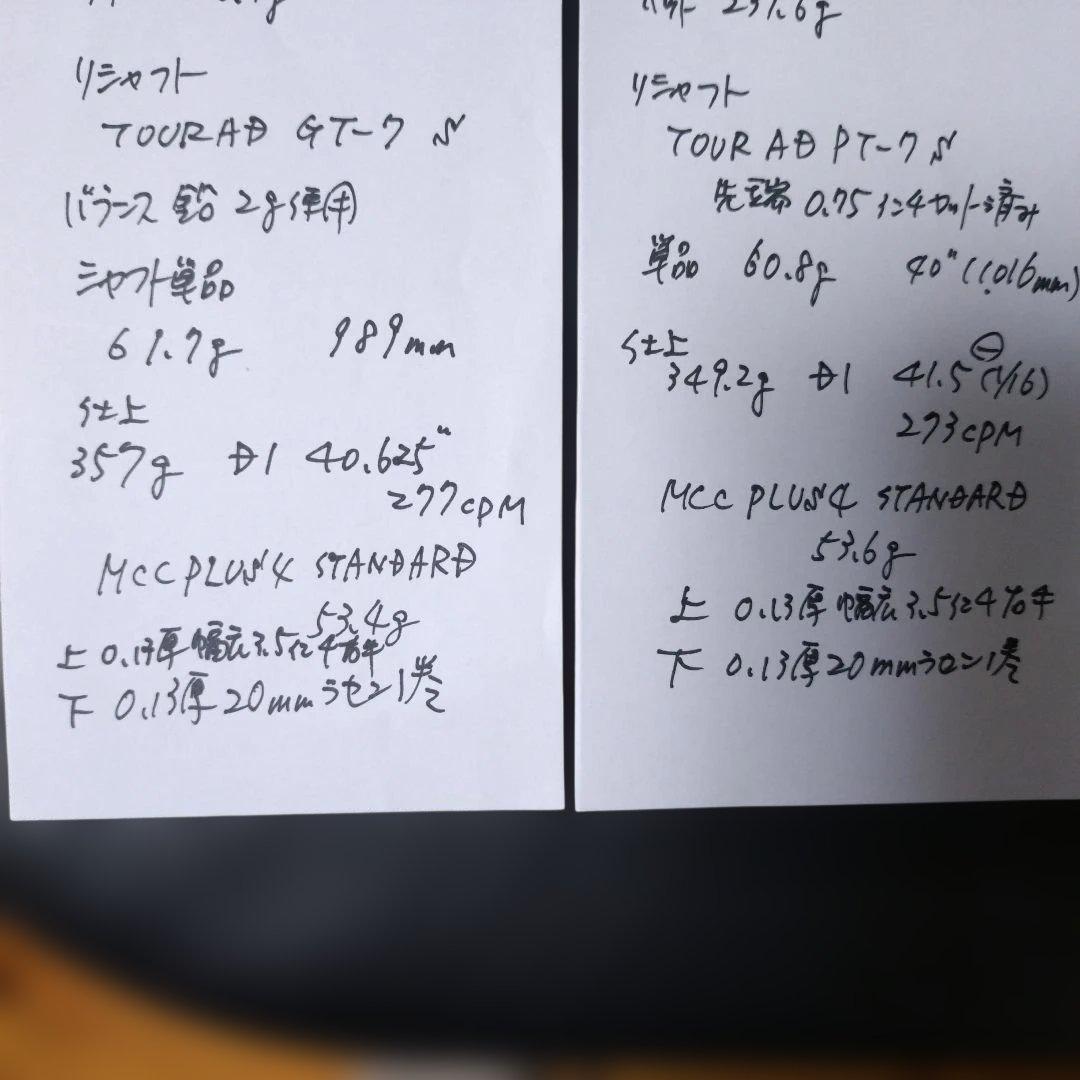 リシャフト
TOUR AD GT-7 S
バランス 鉛 2g使用
シャフト単品
61.7g 989mm
仕上
357g D1 40.625"
277cpm
MCC PLUS4 STANDARD
53.4g
上 0.13厚 幅広3.5インチ右キ
下 0.13厚 20mmラセン1巻
237.6g
リシャフト
TOUR AD PT-7 S
先端 0.75インチカット済み
単品 60.8g 40"(1.016mm)
仕上
349.2g D1 41.5⊖(1/16)
273cpm
MCC PLUS4 STANDARD
53.6g
上 0.13厚 幅広3.5インチ右キ
下 0.13厚20mmラセン1巻